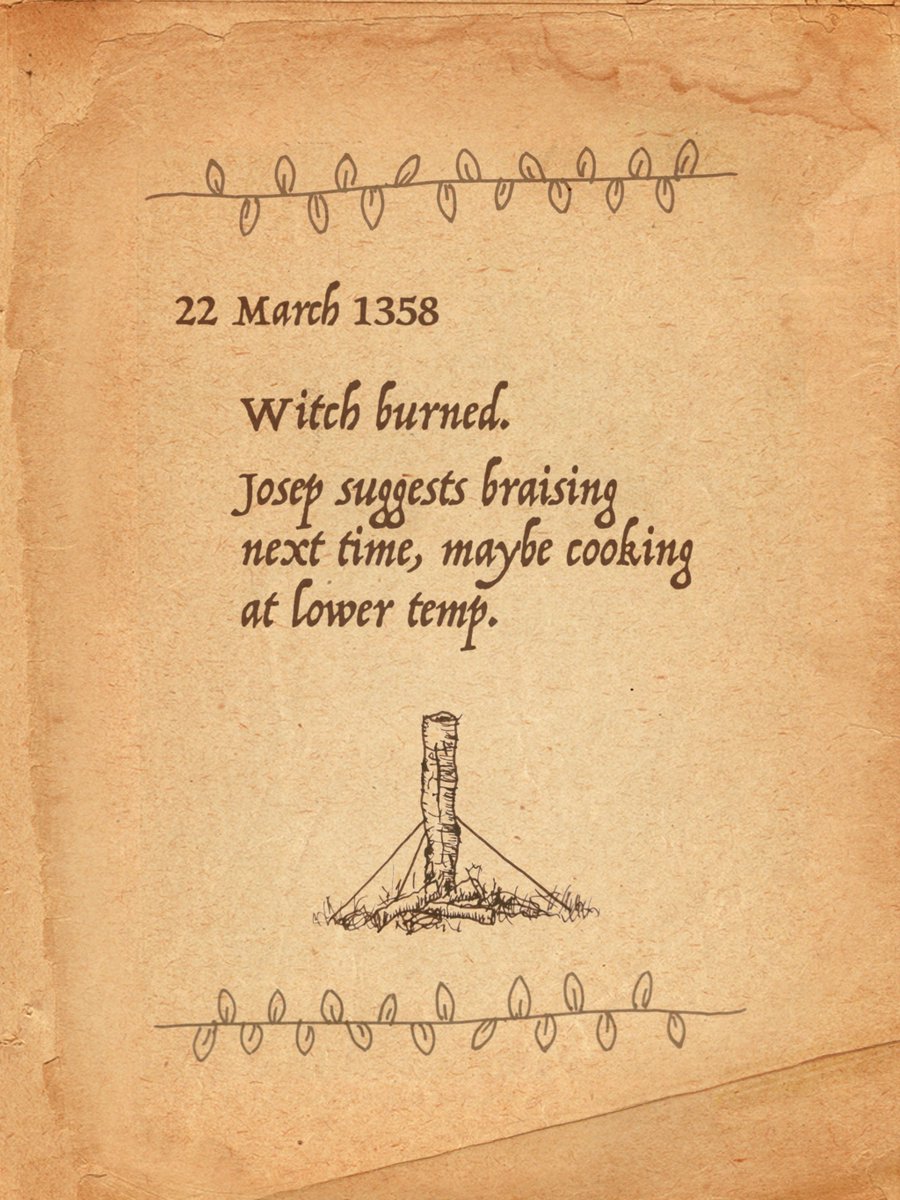 22 March 1358
Witch burned.
Josep suggests braising
next time, maybe cooking
at lower temp.